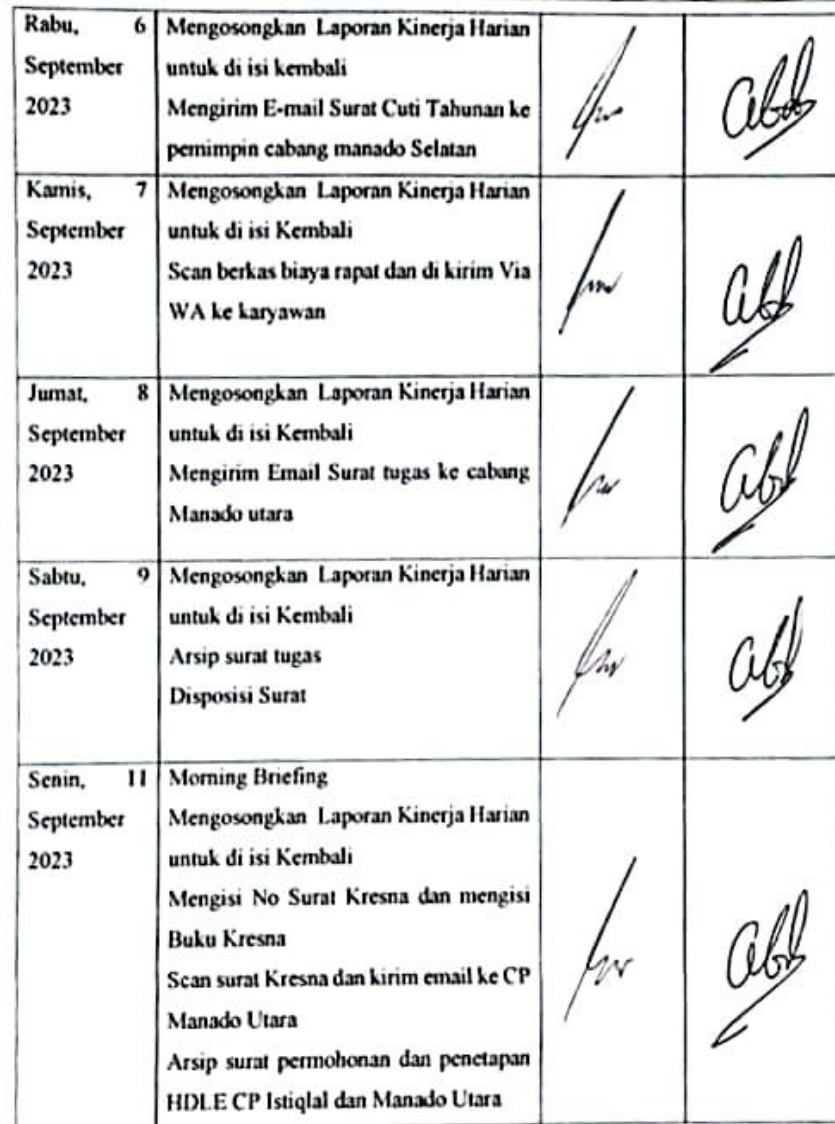 Rabu, 6
September
2023
Mengosongkan Laporan Kinerja Harian
untuk di isi kembali
Mengirim E-mail Surat Cuti Tahunan ke
pemimpin cabang manado Selatan
Kamis, 7
September
2023
Mengosongkan Laporan Kinerja Harian
untuk di isi Kembali
Scan berkas biaya rapat dan di kirim Via
WA ke karyawan
Jumat, 8
September
2023
Mengosongkan Laporan Kinerja Harian
untuk di isi Kembali
Mengirim Email Surat tugas ke cabang
Manado utara
Sabtu, 9
September
2023
Mengosongkan Laporan Kinerja Harian
untuk di isi Kembali
Arsip surat tugas
Disposisi Surat
Senin, 11
September
2023
Morning Briefing
Mengosongkan Laporan Kinerja Harian
untuk di isi Kembali
Mengisi No Surat Kresna dan mengisi
Buku Kresna
Scan surat Kresna dan kirim email ke CP
Manado Utara
Arsip surat permohonan dan penetapan
HDLE CP Istiqlal dan Manado Utara